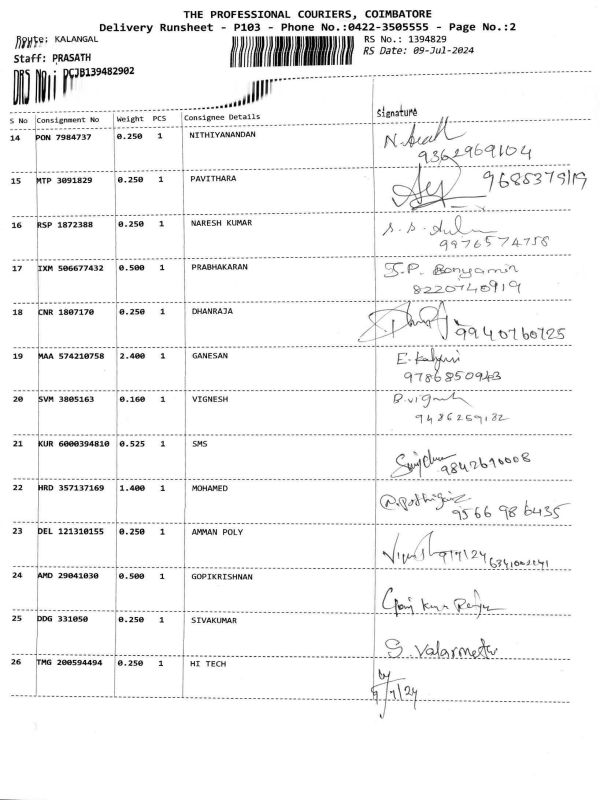 THE PROFESSIONAL COURIERS, COIMBATORE
Delivery Runsheet - P103 - Phone No.:0422-3505555 - Page No.:2
Route: KALANGAL
RS No.: 1394829
Staff: PRASATH
RS Date: 09-Jul-2024
DRS No.: PCJB139482902
S No Consignment No Weight PCS Consignee Details Signature
14 PON 7984737 0.250 1 NITHIYANANDAN
9362969104
15 MTP 3091829 0.250 1 PAVITHARA
16 RSP 1872388 0.250 1 NARESH KUMAR
9976574758
17 IXM 506677432 0.500 1 PRABHAKARAN J.P. Bonyamin
8220740919
18 CNR 1807170 0.250 1 DHANRAJA
9940760725
19 MAA 574210758 2.400 1 GANESAN
9786850943
20 SVM 3805163 0.160 1 VIGNESH
9486259132
21 KUR 6000394810 0.525 1 SMS
9842690008
22 HRD 357137169 1.400 1 MOHAMED
9566 986435
23 DEL 121310155 0.250 1 AMMAN POLY
9/7/24
24 AMD 29041030 0.500 1 GOPIKRISHNAN
25 DDG 331050 0.250 1 SIVAKUMAR
S. Valarmathi
26 TMG 200594494 0.250 1 HI TECH
by
9/7/24